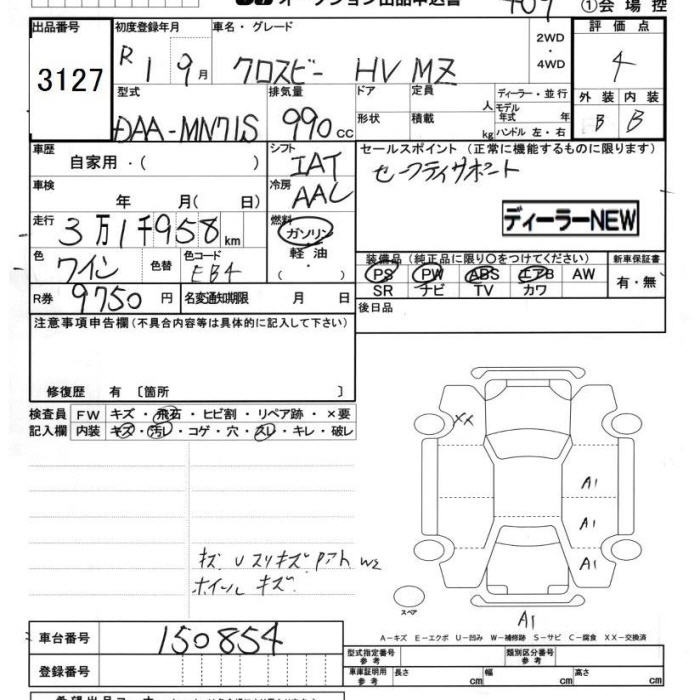 オークション出品申込書 409 ①会場控
出品番号 初度登録年月 車名・グレード 評価点
3127 R1 9月 クロスビー HV MZ 2WD・4WD 4
型式 排気量 ドア 定員 ディーラー・並行 外装 内装
DAA-MN71S 990cc 形状 積載 人 kg モデル年式 年 ハンドル 左・右 B B
車歴 シフト セールスポイント(正常に機能するものに限ります)
自家用・( ) IAT セーフティサポート
車検 冷房
年 月( 日) AAC
走行 燃料 ディーラーNEW
3万1千958km ガソリン
軽油
・( )
色 色替 色コード 装備品(純正品に限り○をつけてください) 新車保証書
ワイン EB4 PS PW ABS エアB AW 有・無
SR ナビ TV カワ
R券 9750円 名変通知期限 月 日 後日品
注意事項申告欄(不具合内容等は具体的に記入して下さい)
修復歴 有 〔箇所 〕
検査員 FW キズ・飛石・ヒビ割・リペア跡・×要
記入欄 内装 キズ・汚レ・コゲ・穴・スレ・キレ・破レ
XX
A1
A1
A1
キズ Uスリキズ Pアト W2
ホイールキズ
スペア
A1
A-キズ E-エクボ U-凹み W-補修跡 S-サビ C-腐食 XX-交換済
車台番号 150854 型式指定番号 参考 類別区分番号 参考
登録番号 車庫証明用 参考 長さ cm 幅 cm 高さ cm